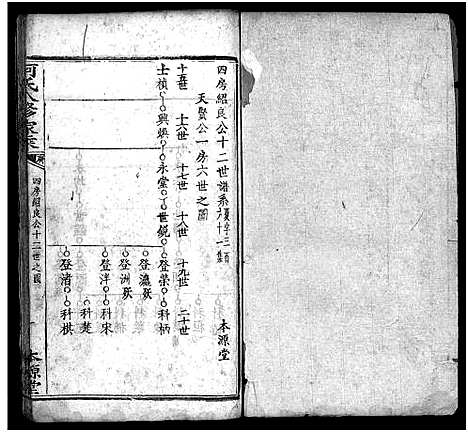 四房紹良公十二世譜系
天賢公一房六世之圖
本源堂
十五世 十六世 十七世 十八世 十九世 二十世
士楨 興煥 永堂 世鏡 登榮 科柄
登瀛 歿
登洲 歿
登洋 科宋
科楚
登渚 科棋
何氏八修家乘
四房紹良公十二世之圖
本源堂